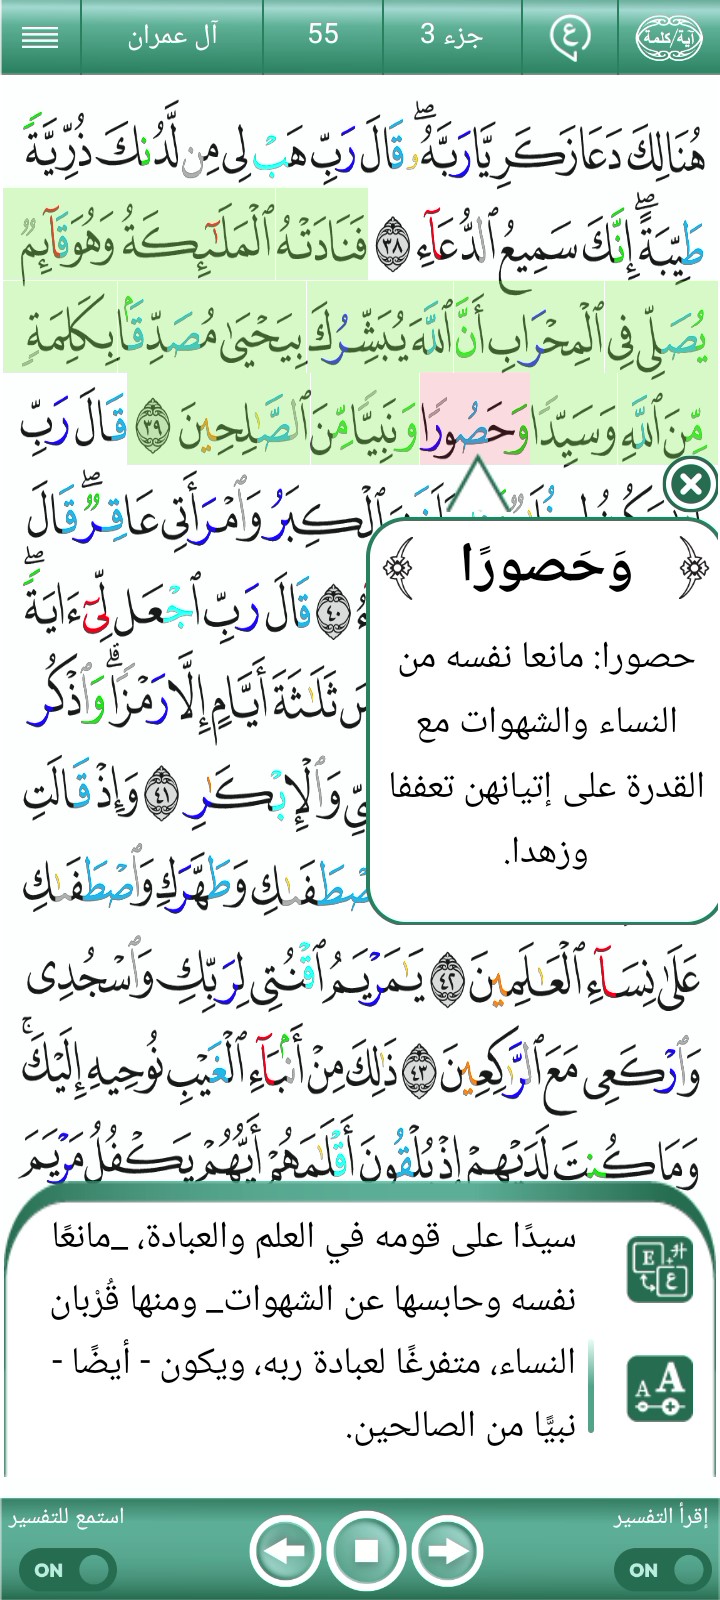 آية/كلمة
ع
جزء 3
55
آل عمران
هُنَالِكَ دَعَا زَكَرِيَّا رَبَّهُۥۖ قَالَ رَبِّ هَبۡ لِي مِن لَّدُنكَ ذُرِّيَّةٗ
طَيِّبَةًۖ إِنَّكَ سَمِيعُ ٱلدُّعَآءِ ٣٨ فَنَادَتۡهُ ٱلۡمَلَٰٓئِكَةُ وَهُوَ قَآئِمٞ
يُصَلِّي فِي ٱلۡمِحۡرَابِ أَنَّ ٱللَّهَ يُبَشِّرُكَ بِيَحۡيَىٰ مُصَدِّقَۢا بِكَلِمَةٖ
مِّنَ ٱللَّهِ وَسَيِّدٗا وَحَصُورٗا وَنَبِيّٗا مِّنَ ٱلصَّٰلِحِينَ ٣٩ قَالَ رَبِّ
ٱلۡكِبَرُ وَٱمۡرَأَتِي عَاقِرٞۖ قَالَ
٤٠ قَالَ رَبِّ ٱجۡعَل لِّيٓ ءَايَةٗۖ
ثَلَٰثَةَ أَيَّامٍ إِلَّا رَمۡزٗاۗ وَٱذۡكُر
وَٱلۡإِبۡكَٰرِ ٤١ وَإِذۡ قَالَتِ
ٱصۡطَفَىٰكِ وَطَهَّرَكِ وَٱصۡطَفَىٰكِ
عَلَىٰ نِسَآءِ ٱلۡعَٰلَمِينَ ٤٢ يَٰمَرۡيَمُ ٱقۡنُتِي لِرَبِّكِ وَٱسۡجُدِي
وَٱرۡكَعِي مَعَ ٱلرَّٰكِعِينَ ٤٣ ذَٰلِكَ مِنۡ أَنۢبَآءِ ٱلۡغَيۡبِ نُوحِيهِ إِلَيۡكَۚ
وَمَا كُنتَ لَدَيۡهِمۡ إِذۡ يُلۡقُونَ أَقۡلَٰمَهُمۡ أَيُّهُمۡ يَكۡفُلُ مَرۡيَمَ
﴿ وَحَصورًا ﴾
حصورا: مانعا نفسه من
النساء والشهوات مع
القدرة على إتيانهن تعففا
وزهدا.
سيدًا على قومه في العلم والعبادة، _مانعًا
نفسه وحابسها عن الشهوات_ ومنها قُرْبان
النساء، متفرغًا لعبادة ربه، ويكون - أيضًا -
نبيًّا من الصالحين.
E ع
A A
إقرأ التفسير
ON
استمع للتفسير
ON